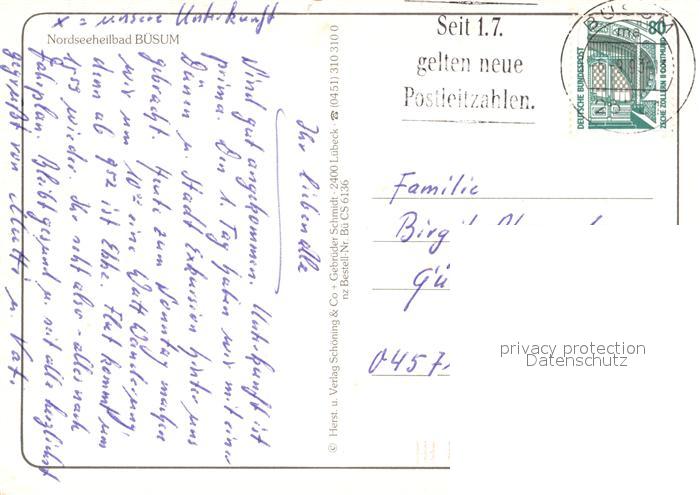 x = unsere Unterkunft
Nordseeheilbad BÜSUM
Ihr lieben alle
Sind gut angekommen. Unterkunft ist
prima. Den 1. Tag haben wir mit einer
Dünen u. Stadt Exkursion hinter uns
gebracht. Heute zum Sonntag machen
wir um 10 eine Watt Wanderung,
denn ab 952 ist Ebbe. Flut kommt um
1553 wieder. Ihr seht also - alles nach
Fahrplan. Bleibt gesund u. seid alle herzlichst
gegrüßt von Mutti u. Vati.
© Herst. u. Verlag Schöning & Co + Gebrüder Schmidt · 2400 Lübeck · ☎ (0451) 310 310 0
nz Bestell-Nr. Bü CS 6136
Seit 1.7.
gelten neue
Postleitzahlen.
BÜSUM
DEUTSCHE BUNDESPOST
80
ZECHE ZOLLERN II · DORTMUND
Familie
Birgit
Gü
0457
privacy protection
Datenschutz